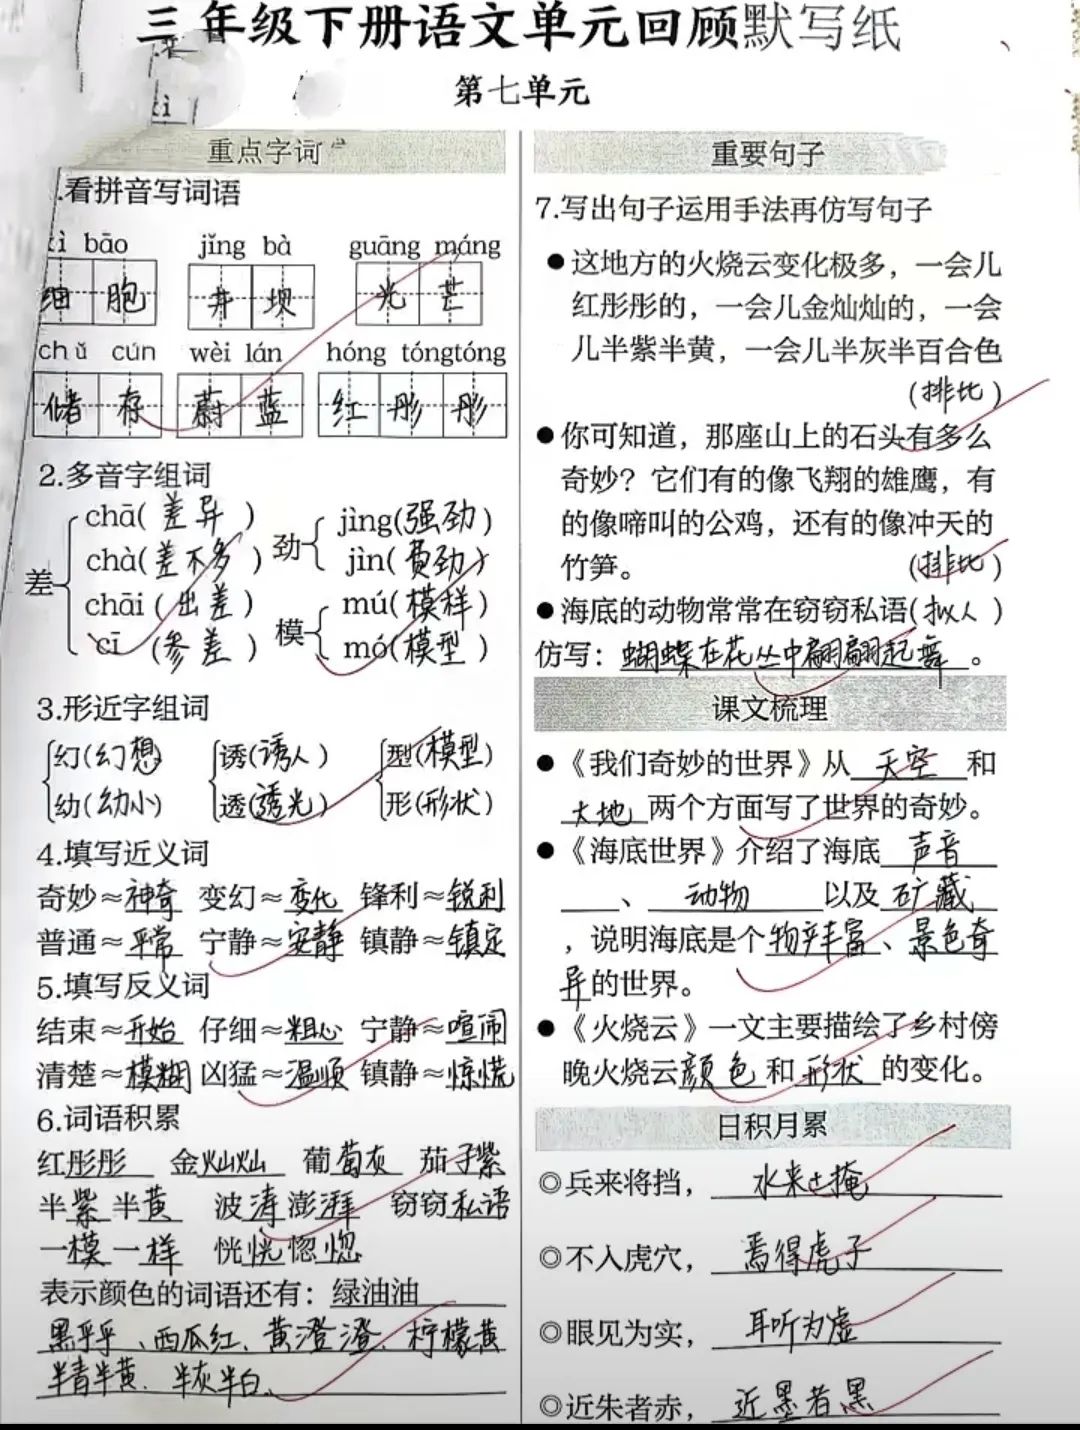 三年级下册语文单元回顾默写纸
第七单元
重点字词
.看拼音写词语
xì bāo jǐng bà guāng máng
细胞 井坝 光芒
chǔ cún wèi lán hóng tóngtóng
储存 蔚蓝 红彤彤
2.多音字组词
差 chā(差异) chà(差不多) chāi(出差) cī(参差)
劲 jìng(强劲) jìn(费劲)
模 mú(模样) mó(模型)
3.形近字组词
幻(幻想) 诱(诱人) 型(模型)
幼(幼小) 透(透光) 形(形状)
4.填写近义词
奇妙≈神奇 变幻≈变化 锋利≈锐利
普通≈平常 宁静≈安静 镇静≈镇定
5.填写反义词
结束≈开始 仔细≈粗心 宁静≈喧闹
清楚≈模糊 凶猛≈温顺 镇静≈惊慌
6.词语积累
红彤彤 金灿灿 葡萄灰 茄子紫
半紫半黄 波涛澎湃 窃窃私语
一模一样 恍恍惚惚
表示颜色的词语还有：绿油油
黑乎乎、西瓜红、黄澄澄、柠檬黄
半青半黄、半灰半白。
重要句子
7.写出句子运用手法再仿写句子
●这地方的火烧云变化极多，一会儿
红彤彤的，一会儿金灿灿的，一会
儿半紫半黄，一会儿半灰半百合色
(排比)
●你可知道，那座山上的石头有多么
奇妙？它们有的像飞翔的雄鹰，有
的像啼叫的公鸡，还有的像冲天的
竹笋。 (排比)
●海底的动物常常在窃窃私语(拟人)
仿写：蝴蝶在花丛中翩翩起舞。
课文梳理
●《我们奇妙的世界》从 天空 和
大地 两个方面写了世界的奇妙。
●《海底世界》介绍了海底 声音
、 动物 以及 矿藏
，说明海底是个物产丰富、景色奇
异的世界。
●《火烧云》一文主要描绘了乡村傍
晚火烧云颜色和形状的变化。
日积月累
◎兵来将挡，水来土掩
◎不入虎穴，焉得虎子
◎眼见为实，耳听为虚
◎近朱者赤，近墨者黑